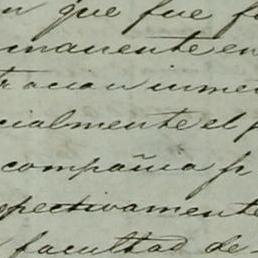 n que fue f
manente en
tracion inme
cialmente el p
compañia p
spectivamente
facultad de